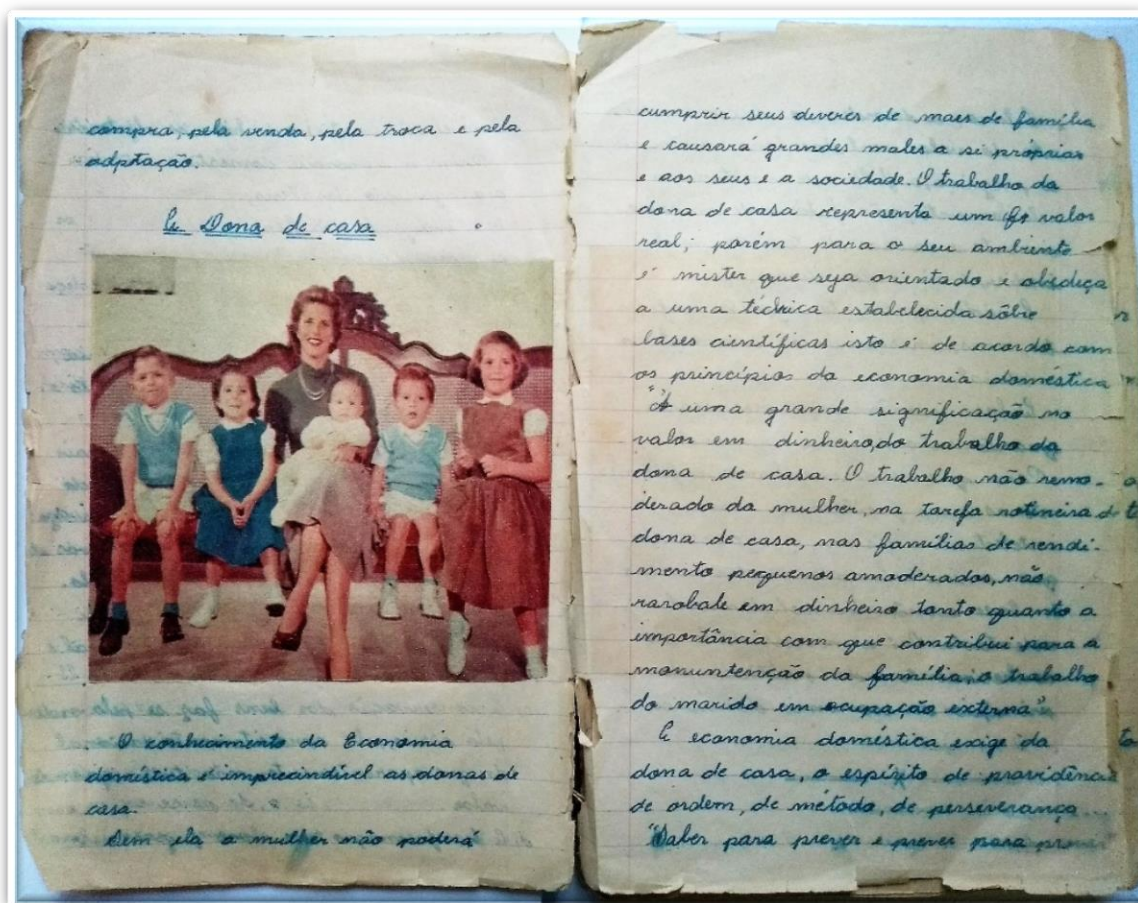 compra, pela venda, pela troca e pela
adptação.
A Dona de casa
O conhecimento da Economia
doméstica é imprecindível as donas de
casa.
Sem ela a mulher não poderá
cumprir seus deveres de maes de família
e causará grandes males a si próprias
e aos seus e a sociedade. O trabalho da
dona de casa representa um valor
real; porém para o seu ambiente
é mister que seja orientado e obedeça
a uma téchica estabelecida sôbre
bases científicas isto é de acordo com
os princípios da economia doméstica
uma grande significação no
valor em dinheiro, do trabalho da
dona de casa. O trabalho não remo-
derado da mulher, na tarefa rotineira de
dona de casa, nas famílias de rendi-
mento pequenos amoderados, não
em dinheiro tanto quanto a
importância com que contribui para a
monuntenção da família, o trabalho
do marido em ocupação externa"
A economia doméstica exige da
dona de casa, o espírito de providência
de ordem, de método, de perseverança...
"Saber para prever e prever para prover"